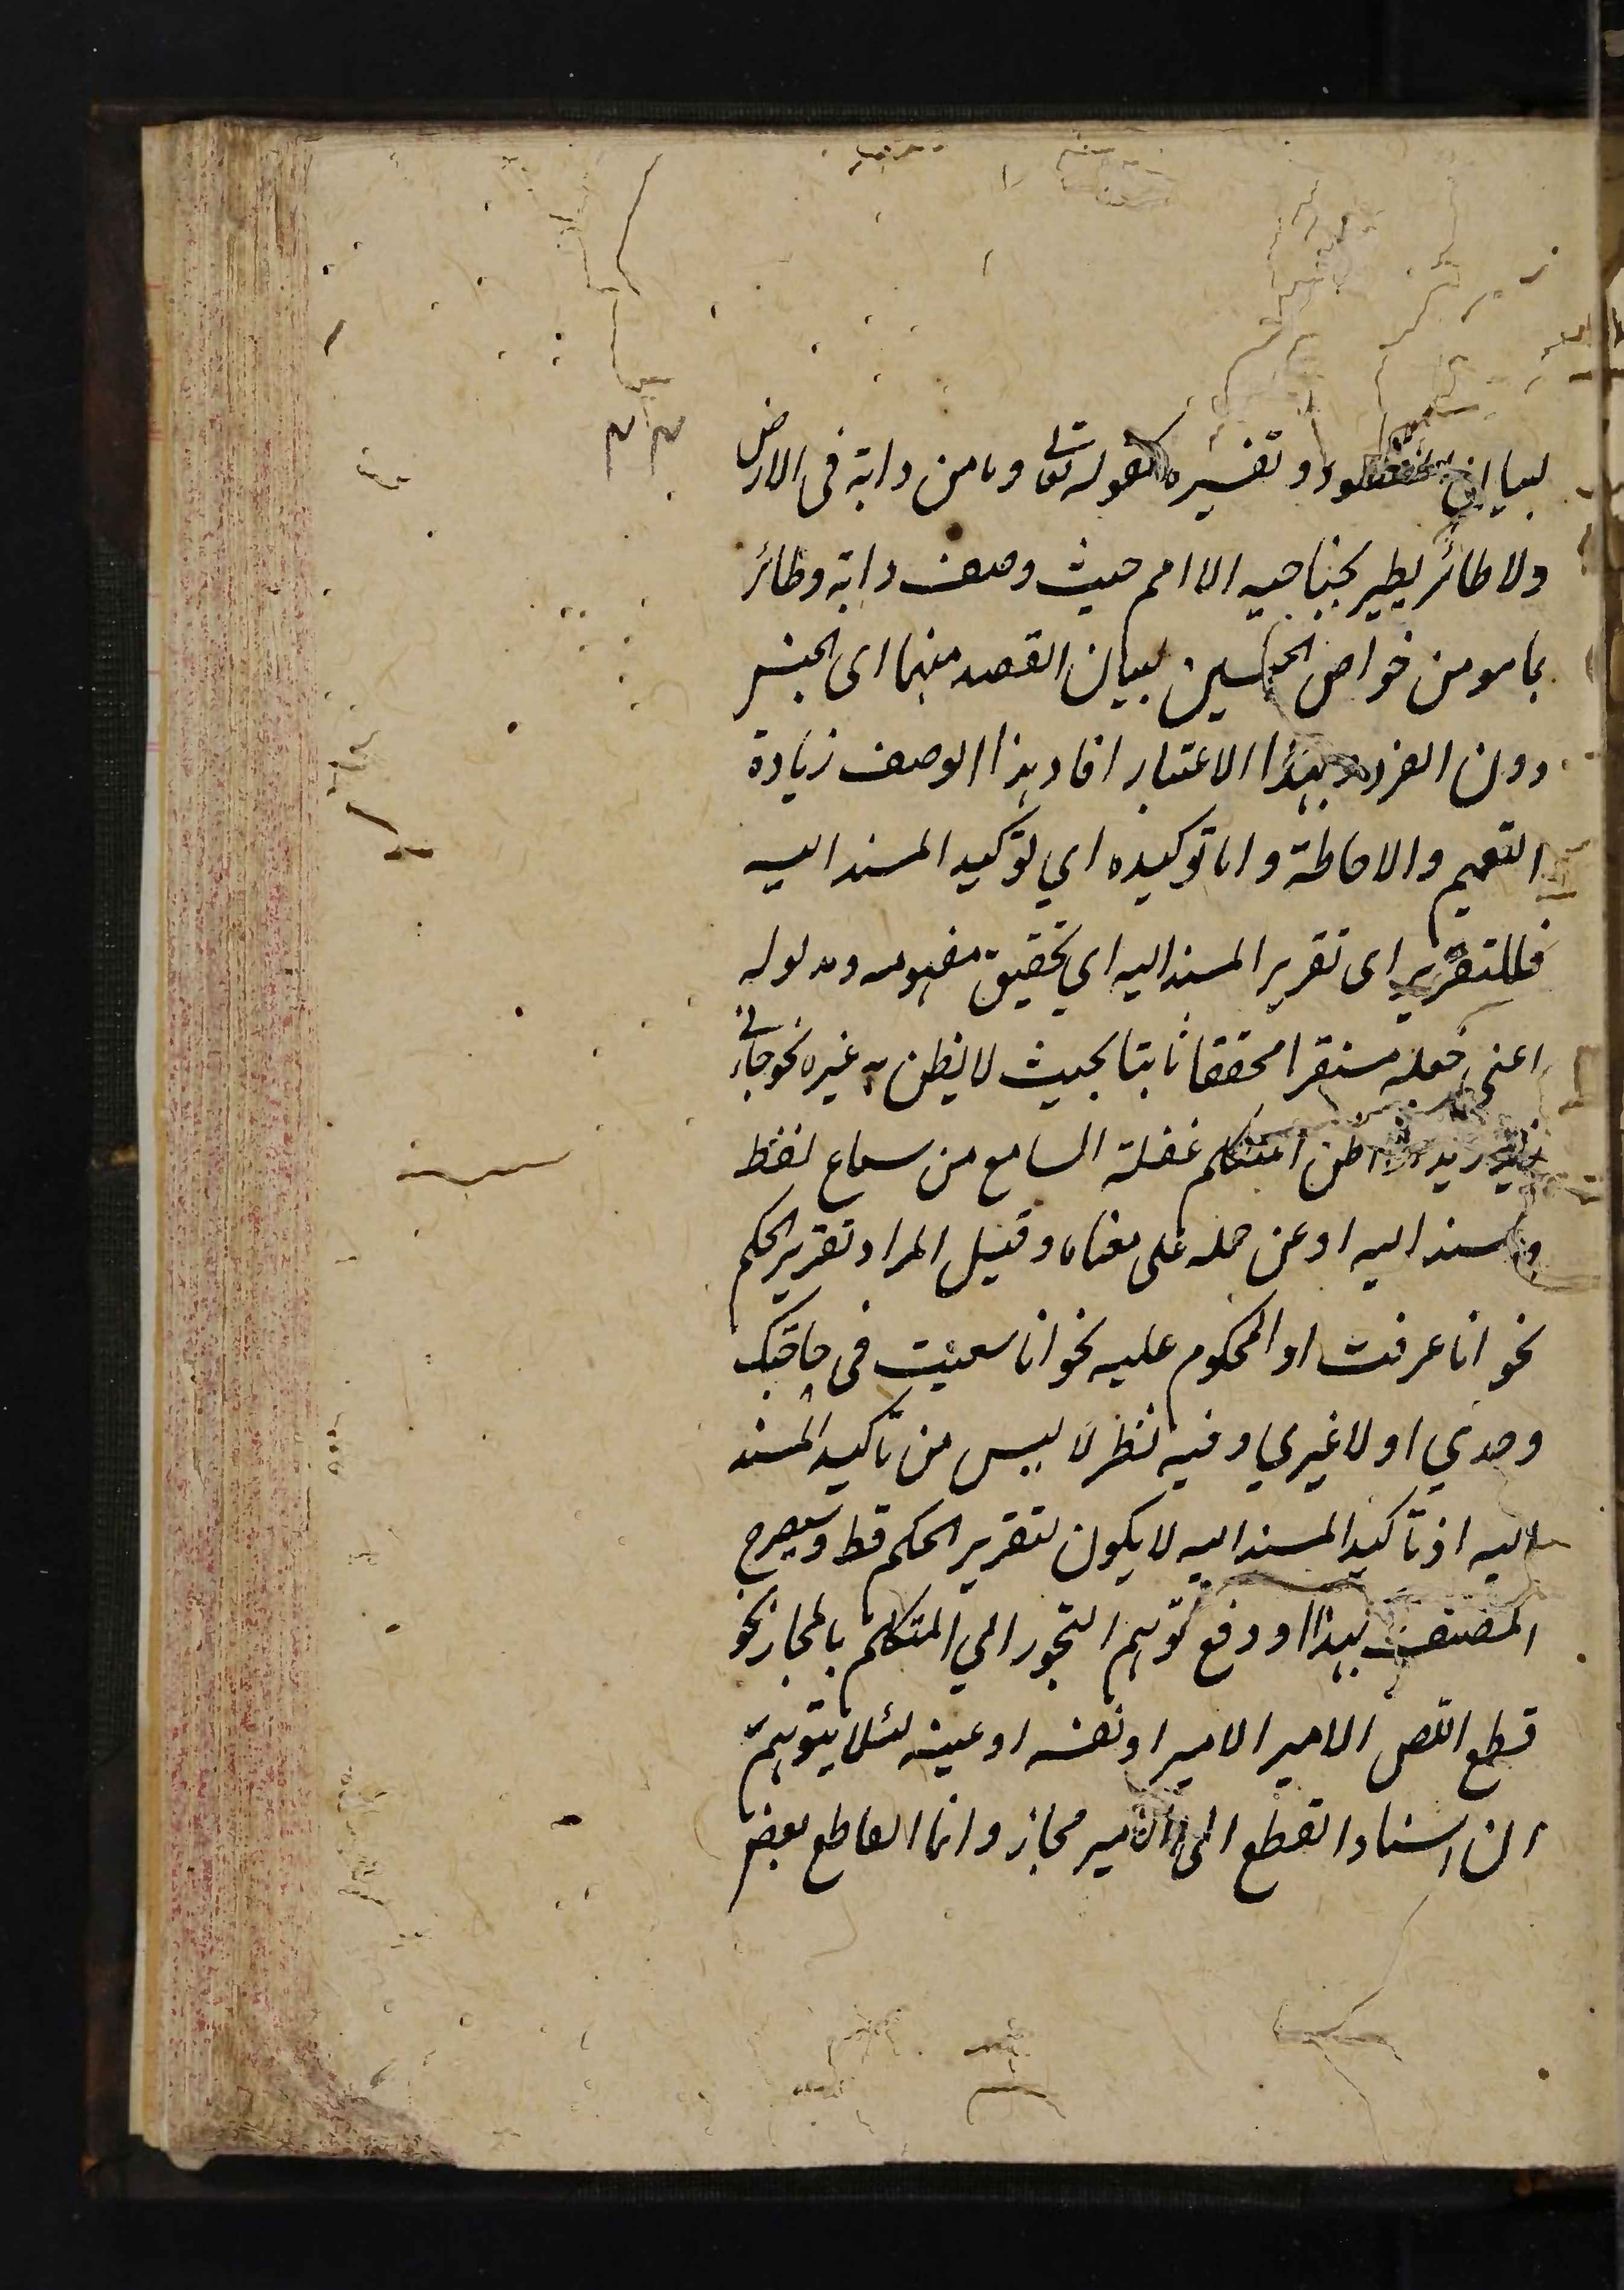 لبيان المقصود وتفسيره كقوله تعالى وما من دابة فى الارض
ولا طائر يطير بجناحيه الا امم حيث وصف دابة وطائر
بما هو من خواص الجنسين لبيان القصد منهما الى الجنس
دون الفرد وبهذا الاعتبار افاد هذا الوصف زيادة
التعميم والاحاطة واما توكيده اي توكيد المسند اليه
فللتقرير اى تقرير المسند اليه اي تحقيق مفهومه ومدلوله
اعنى جعله مستقرا محققا ثابتا بحيث لا يظن به غيره نحو جاءنى
زيد زيد اذا ظن المتكلم غفلة السامع من سماع لفظ
المسند اليه او عن حمله على معناه وقيل المراد تقرير الحكم
نحو انا عرفت او المحكوم عليه نحو انا سعيت فى حاجتك
وحدي او لا غيري وفيه نظر لانه ليس من تأكيد المسند
اليه اذ تأكيد المسند اليه لا يكون لتقرير الحكم قط وسيصرح
المصنف بهذا او دفع توهم التجوز اي المتكلم بالمجاز نحو
قطع اللص الامير الامير او نفسه او عينه لئلا يتوهم
ان اسناد القطع الى الامير مجاز وانما القاطع بعض